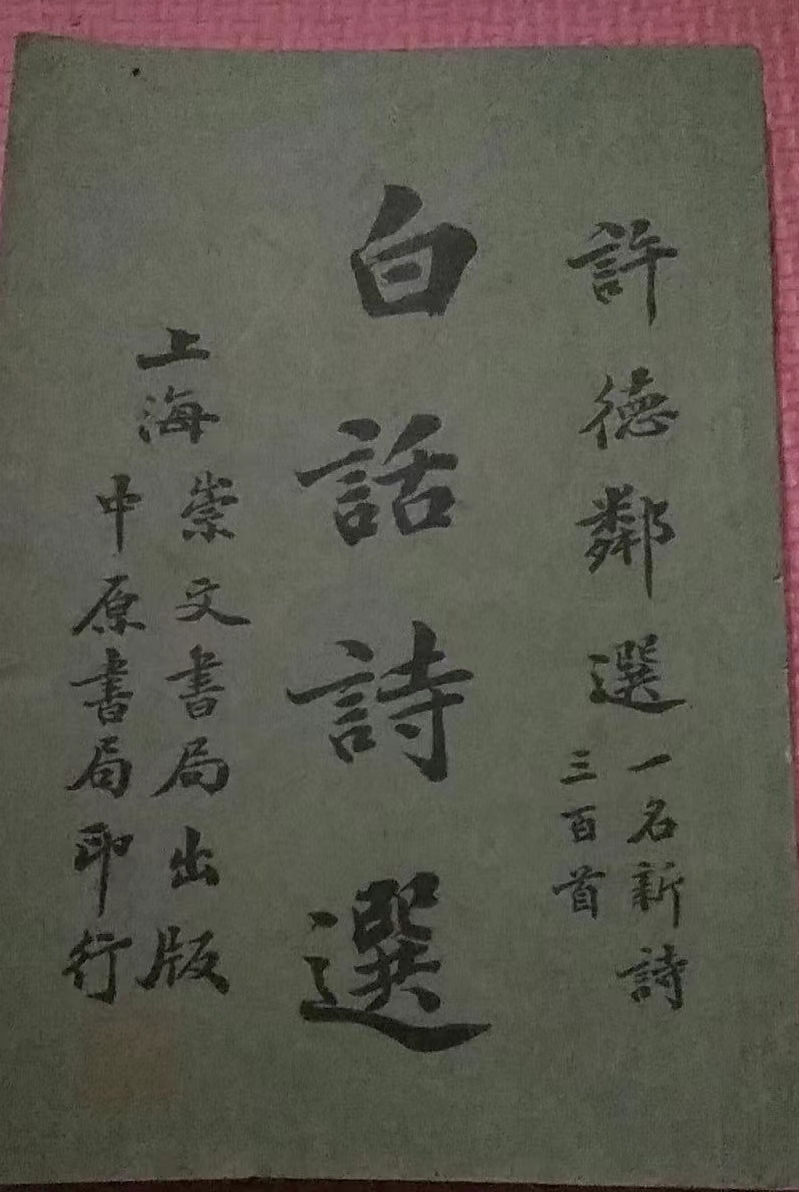 許德鄰選
一名新詩
三百首
白話詩選
上海
崇文書局出版
中原書局印行